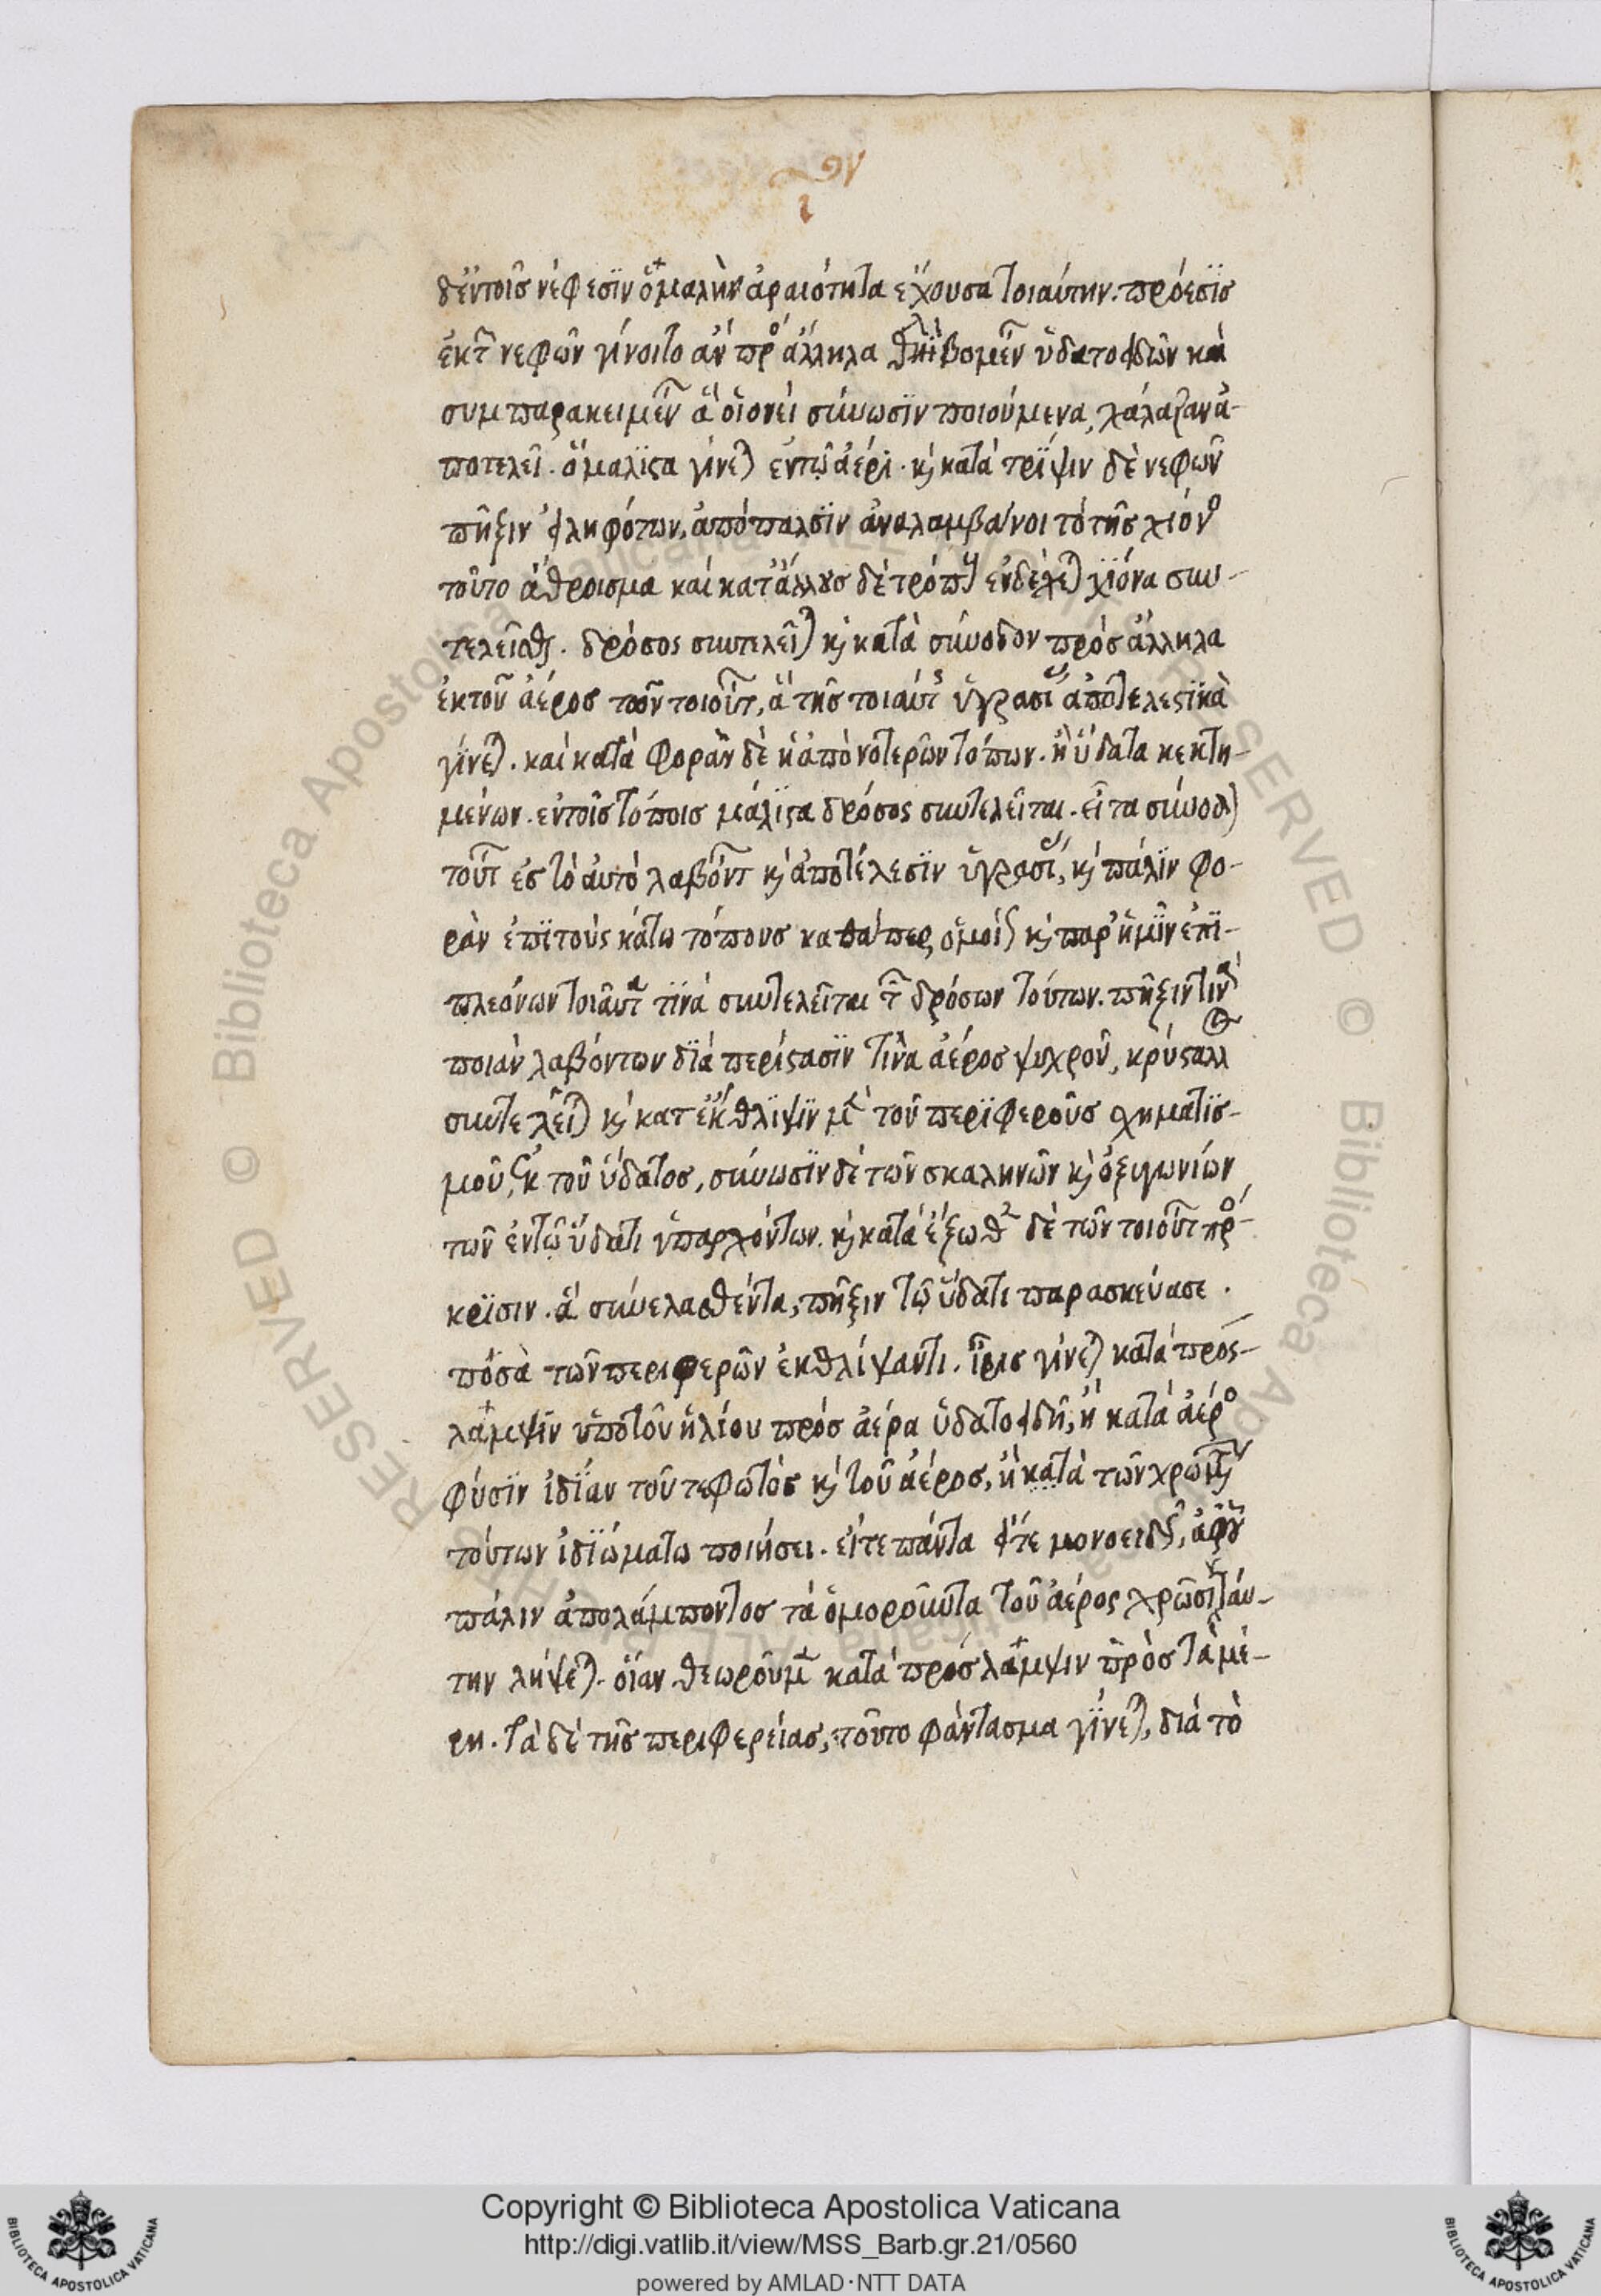 δ' ἐν τοῖς νέφεσιν ὁμαλὴν ἀραιότητα ἔχουσα τοιαύτην. πρόεσις
ἐκ τ νεφῶν γίνοιτο ἂν πρ ἄλληλα θλιβομεν ὑδατοειδῶν καὶ
συμπαρακειμεν ἃ οἱονεὶ σύνωσιν ποιούμενα, χάλαζαν ἀ-
ποτελεῖ. ὃ μάλιστα γίνε ἐν τῷ ἀέρι. κ κατὰ τρίψιν δὲ νεφῶν
πῆξιν εἰληφότων, ἀπόπαλσιν ἀναλαμβάνοι τὸ τῆς χιόνο
τοῦτο ἄθροισμα καὶ κατ' ἄλλους δὲ τρόπους ἐνδέχε χιόνα συν-
τελεῖσθ. δρόσος συντελεῖ κ κατὰ σύνοδον πρὸς ἄλληλα
ἐκ τοῦ ἀέρος τῶν τοιούτ, ἃ τῆς τοιαύτ ὑγρασί ἀποτελεστικὰ
γίνε. καὶ κατὰ φορὰν δὲ ἢ ἀπὸ νοτερῶν τόπων. ἢ ὕδατα κεκτη-
μένων. ἐν τοῖς τόποις μάλιστα δρόσος συντελεῖται. εἶτα σύνοδ
τούτ ἐς τὸ αὐτὸ λαβόντ κ ἀποτέλεσιν ὑγρασί, κ πάλιν φο-
ρὰν ἐπὶ τοὺς κάτω τόπους καθάπερ ὁμοί κ παρ' ἡμῖν ἐπὶ
πλεόνων τοιαῦτα τινὰ συντελεῖται τ δρόσων τούτων. πῆξιν τινὰ
ποιὰν λαβόντων διὰ περίστασιν τινὰ ἀέρος ψυχροῦ, κρύσταλλ
συντελεῖ κ κατ' ἔκθλιψιν μ τοῦ περιφεροῦς σχηματισ-
μοῦ, ἐκ τοῦ ὕδατος, σύνωσιν δὲ τῶν σκαληνῶν κ ὀξυγωνίων
τῶν ἐν τῷ ὕδατι ὑπαρχόντων. κ κατὰ ἔξωθ δὲ τῶν τοιούτ πρ
κρισιν. ἃ συνελασθέντα, πῆξιν τῷ ὕδατι παρασκεύασε.
πόσα τῶν περιφερῶν ἐκθλίψαντι. ἶρις γίνε κατὰ πρόσ-
λαμψιν ὑπὸ τοῦ ἡλίου πρὸς ἀέρα ὑδατοειδῆ, ἢ κατὰ ἀέρο
φύσιν ἰδίαν τοῦ τε φωτὸς κ τοῦ ἀέρος, ἢ κατὰ τῶν χρωμ
τούτων ἰδιώματω ποιήσει. εἴτε πάντα εἴτε μονοειδ, ἀφ' οὗ
πάλιν ἀπολάμποντος τὰ ὁμοροῦντα τοῦ ἀέρος χρῶσιν ταύ-
την λήψε. οἵαν θεωροῦμ κατὰ πρόσλαμψιν πρὸς τὰ μέ-
ρη. τὰ δὲ τῆς περιφερείας, τοῦτο φάντασμα γίνε, διὰ τὸ
Copyright © Biblioteca Apostolica Vaticana
http://digi.vatlib.it/view/MSS_Barb.gr.21/0560
powered by AMLAD·NTT DATA